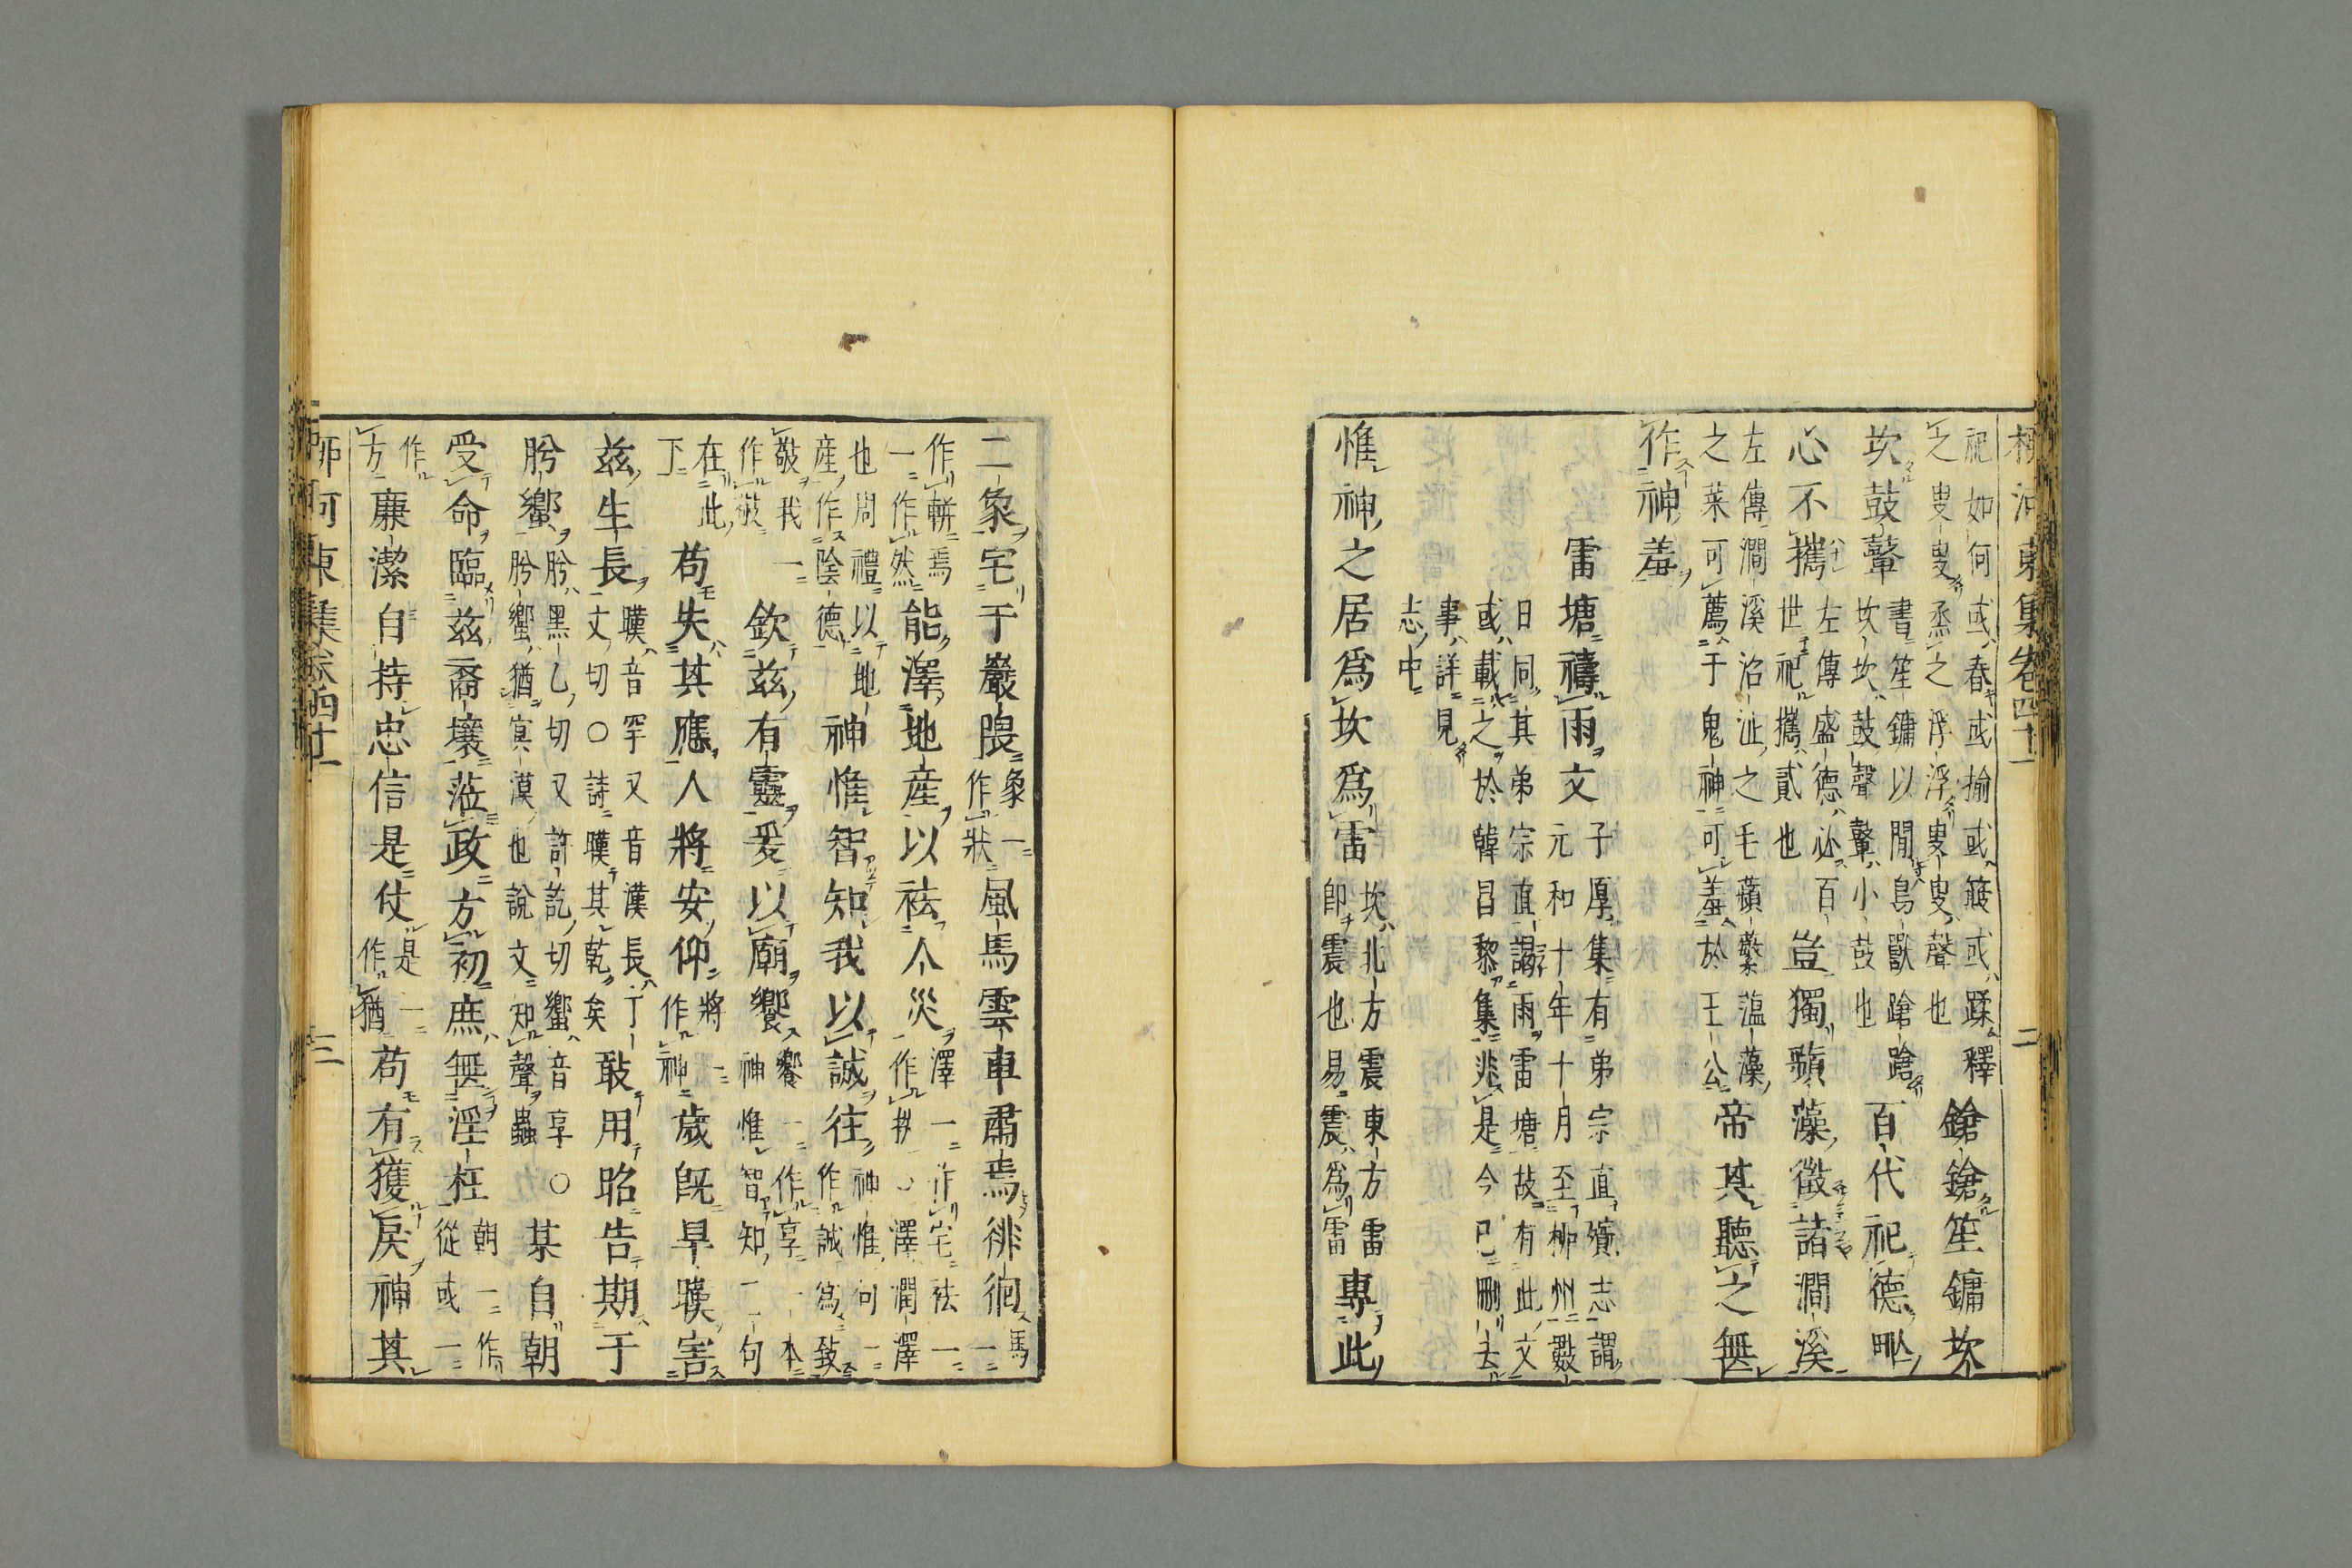 柳河東集卷四十一 二
祀如何或舂或揄或簸或蹂釋
之叟叟烝之浮浮叟叟聲也
鎗鎗笙鏞坎
坎鼓鼙
書笙鏞以間鳥獸蹌蹌
坎坎鼓聲鼙小鼓也
百代祀德甿
心不攜
左傳盛德必百
世祀攜貳也
豈獨蘋藻徵諸澗溪
左傳澗溪沼沚之毛蘋蘩薀藻
之菜可薦于鬼神可羞於王公
帝其聽之無
作神羞
雷塘禱雨文
子厚集有弟宗直殯志謂
元和十年十月至柳州數
日同其弟宗直謁雨雷塘故有此文
或載之於韓昌黎集非是今已刪去
事詳見
志中
惟神之居爲坎爲雷
坎北方震東方雷
卽震也易震爲雷
專此
二象宅于巖隈
象一
作狀
風馬雲車肅焉徘徊
馬
一
作軿焉
一作然
能澤地産以祛人災
澤一作宅祛一
作 ○澤潤澤
也周禮以地
産作陰德
神惟智知我以誠往
神惟句一
作誠爲致
敬我一
作敬
欽茲有靈爰以廟饗
饗一作享一本
神惟智知一句
在此
下
苟失其應人將安仰
將一
作神
歲既旱暵害
茲生長
暵音罕又音漢長丁
丈切○詩暵其乾矣
敢用昭告期于
肸蠁
肸黑乙切又許訖切蠁音享○
肸蠁猶冥漠也說文知聲蟲
某自朝
受命臨茲裔壤蒞政方初庶無淫枉
朝一作
從或一
作
方
廉潔自持忠信是仗
是一
作猶
苟有獲戾神其
柳河東集卷四十一 三